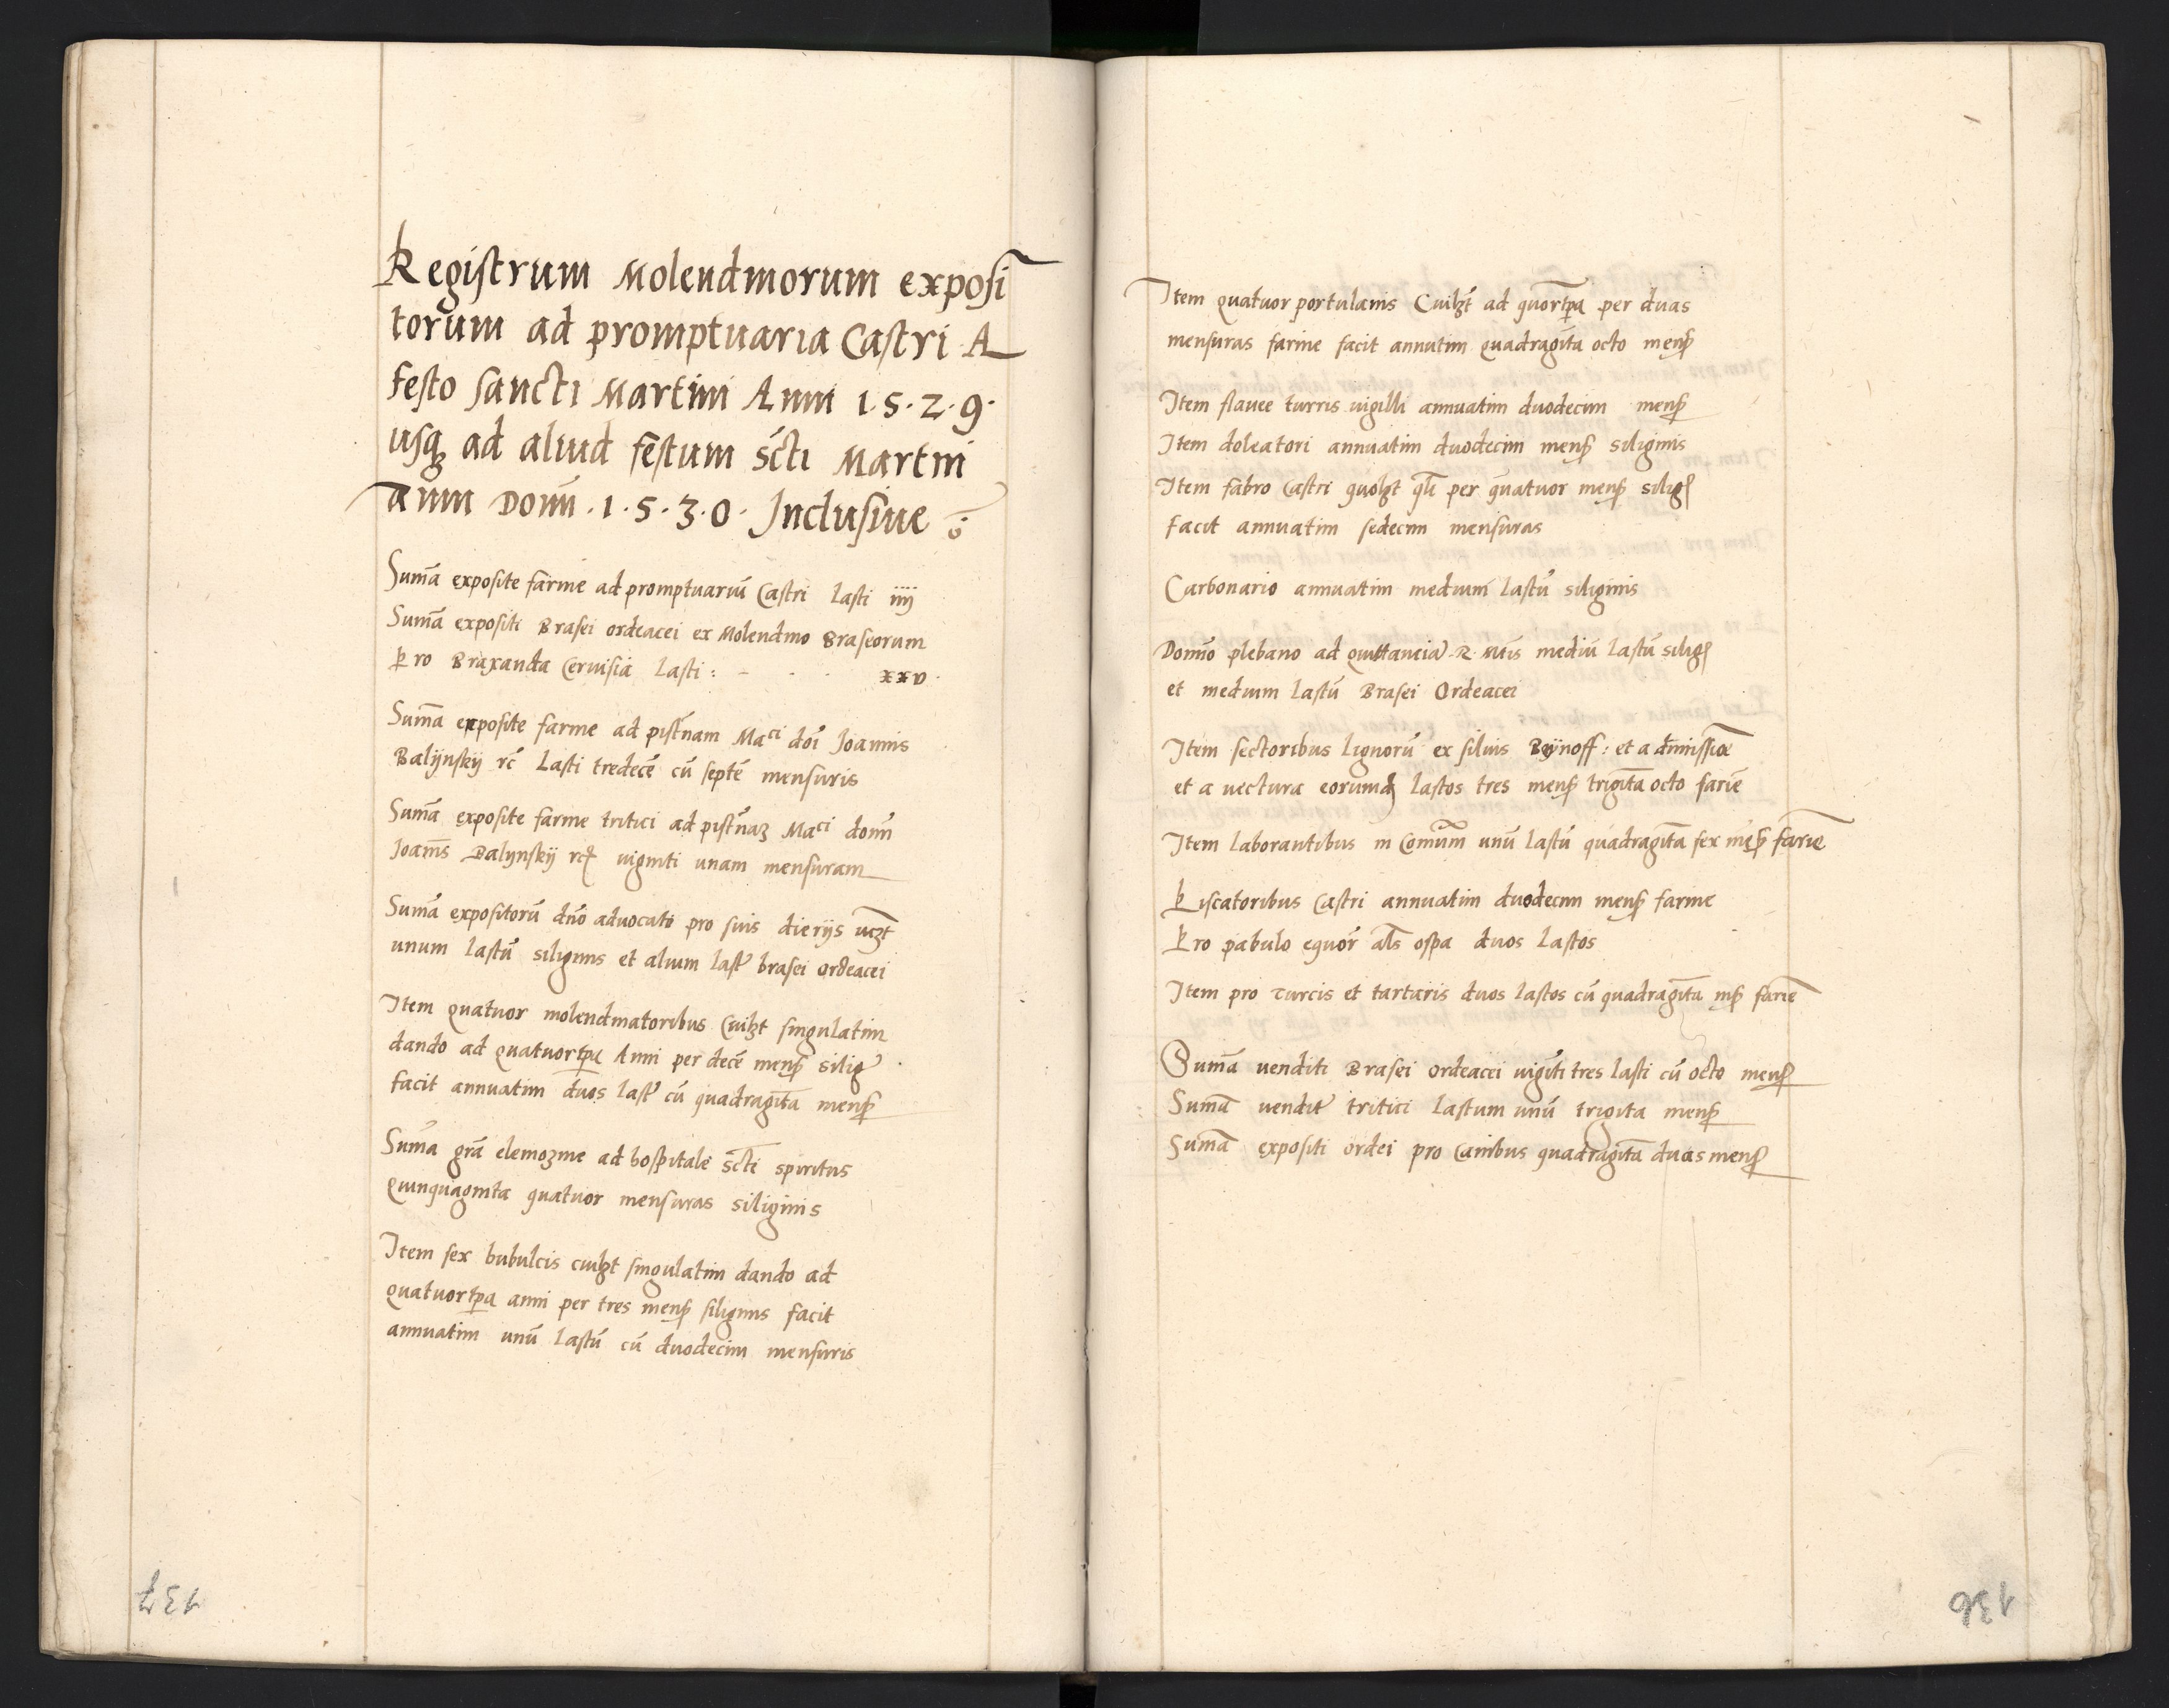 Registrum Molendinorum exposi
torum ad promptuaria Castri A
festo Sancti Martini Anni 1.5.2.9.
usq3 ad aliud festum sc̄ti Martini
anni Domī .1.5.3.0. Inclusiue
Sum̄a exposite farine ad promptuariū Castri Lasti iiij
Sum̄a expositi Brasei ordeacei ex Molendino Braseorum
Pro Braxanda Ceruisia Lasti : xxv
Sum̄a exposite farine ad pistr̄nam Ma^ci doī Joannis
Balijnskij rc̄ Lasti tredecē cū septē mensuris
Sum̄a exposite farine tritici ad pistr̄naʒ Ma^ci domī
Joan̄is Balijnskij viginti unam mensuram
Sum̄a expositorū dn̄o aduocato pro suis dierijs vcʒt
unum lastū siliginis et alium last brasei ordeacei
Item quatuor molendinatoribus Cuilʒt singulatim
dando ad quatuortp̄a Anni per decē mens silig
facit annuatim duos last cū quadragīta mens
Suma gr̄a elemoʒine ad hospitale sc̄ti spiritus
quinquaginta quatuor mensuras siliginis
Item sex bubulcis cuilʒt singulatim dando ad
quatuortp̄a anni per tres mens siliginis facit
annuatim unū lastū cū duodecim mensuris
137
Item quatuor portulanis Cuilʒt ad quortp̄a per duas
mensuras farine facit annutim quadragīta octo mens
Item flauee turris uigilli annuatim duodecim mens
Item doleatori annuatim duodecim mens siliginis
Item fabro Castri quolʒt per quatuor mens silig
facit annuatim sedecim mensuras
Carbonario annuatim medium lastū siliginis
Domīo plebano ad quittancia R. mediū lastū silig
et medium lastū Brasei Ordeacei
Item sectoribus lignorū ex siluis Beijnoff: et a dimissiōe
et a uectura eorumd lastos tres mens trigīta octo farīe
Item laborantibus in Comūm unū lastū quadragīta sex mens farīe
Piscatoribus Castri annuatim duodecim mens farine
Pro pabulo equor al̄s ospa duos lastos
Item pro Turcis et tartaris duos lastos cū quadragīta ms farīe
Sum̄a uenditi Brasei ordeacei uigīti tres lasti cū octo mens
Sum̄a uendit tritici lastum unū trigīta mens
Sum̄a expositi ordei pro Canibus quadragīta duas mens
136